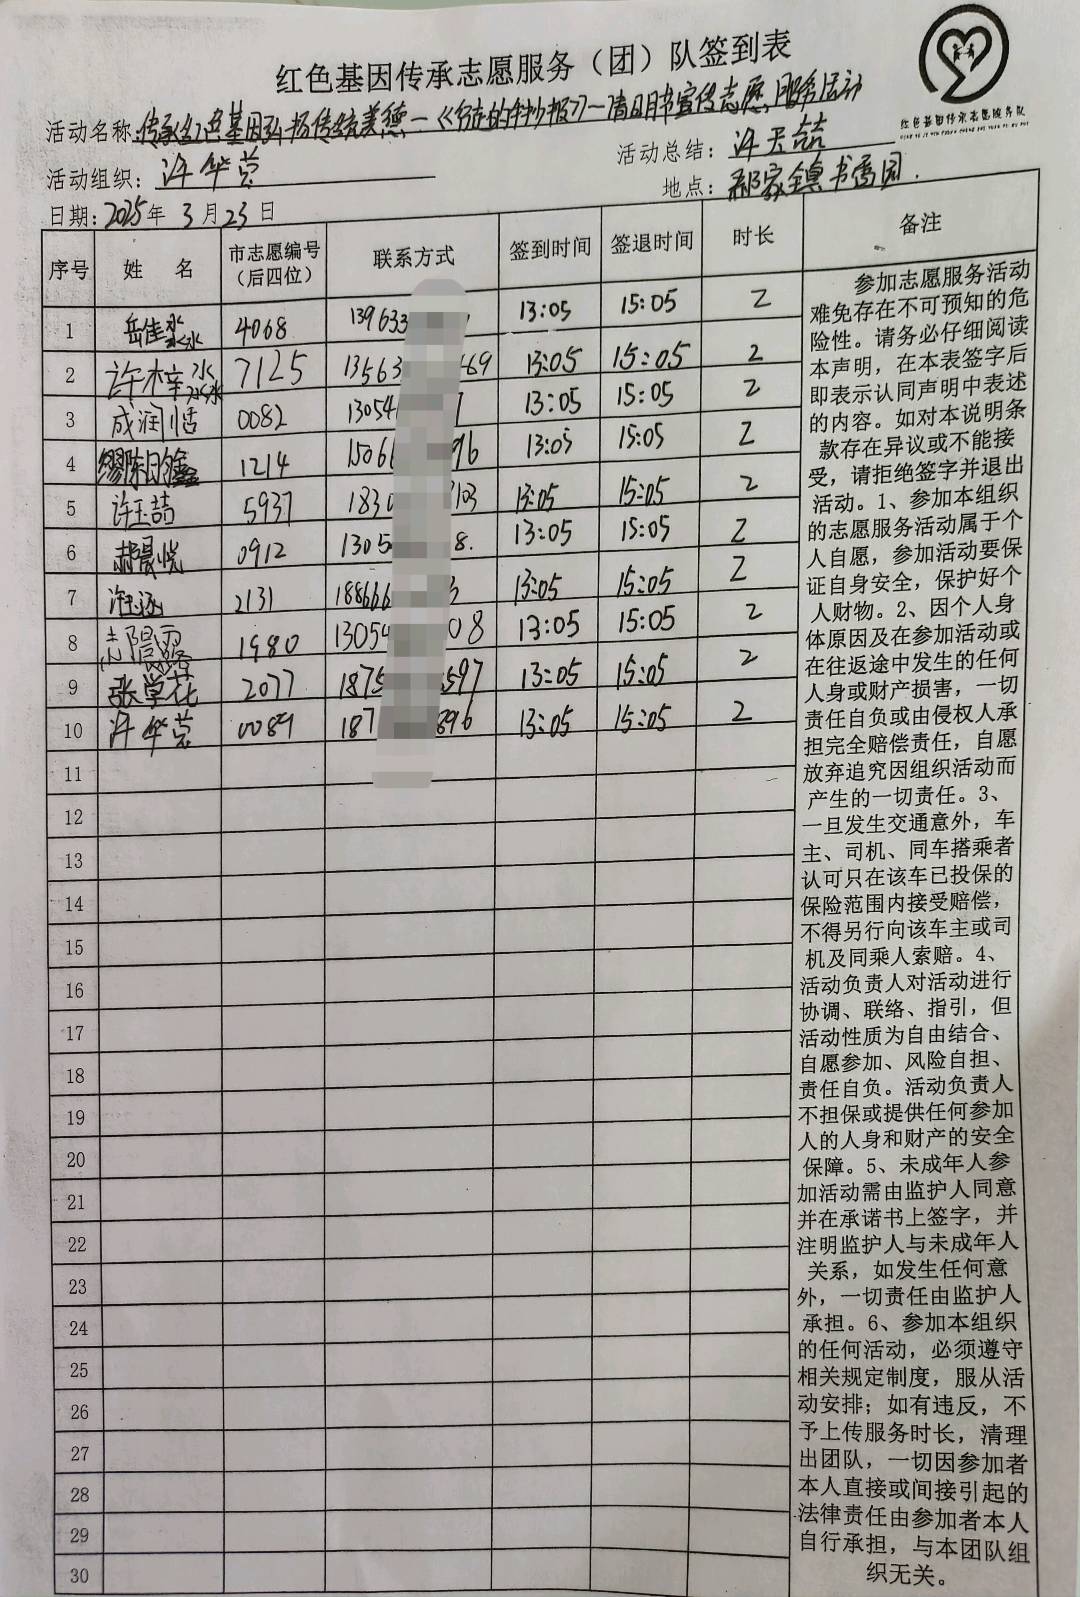 红色基因传承志愿服务（团）队签到表
红色基因传承志愿服务队
活动名称:传承红色基因弘扬传统美德—《行走的手抄报》—清明书宣传志愿服务活动
活动组织: 许华芸
活动总结: 许玉喆
日期:2025年 3月23日
地点: 郝家镇书香园.
序号 姓 名 市志愿编号（后四位） 联系方式 签到时间 签退时间 时长 备注
1 岳佳淼 4068 139633 13:05 15:05 2
2 许梓淼 7125 13563 469 13:05 15:05 2
3 成润恬 0082 13054 13:05 15:05 2
4 缪陈日鑫 1214 15066 96 13:05 15:05 2
5 许玉喆 5937 1830 103 13:05 15:05 2
6 郝晨悦 0912 1305 8. 13:05 15:05 2
7 许玉涵 2131 188666 3 13:05 15:05 2
8 1980 13054 08 13:05 15:05 2
9 张学花 2077 1875 597 13:05 15:05 2
10 许华芸 0089 187 896 13:05 15:05 2
11
12
13
14
15
16
17
18
19
20
21
22
23
24
25
26
27
28
29
30
参加志愿服务活动
难免存在不可预知的危
险性。请务必仔细阅读
本声明，在本表签字后
即表示认同声明中表述
的内容。如对本说明条
款存在异议或不能接
受，请拒绝签字并退出
活动。1、参加本组织
的志愿服务活动属于个
人自愿，参加活动要保
证自身安全，保护好个
人财物。2、因个人身
体原因及在参加活动或
在往返途中发生的任何
人身或财产损害，一切
责任自负或由侵权人承
担完全赔偿责任，自愿
放弃追究因组织活动而
产生的一切责任。3、
一旦发生交通意外，车
主、司机、同车搭乘者
认可只在该车已投保的
保险范围内接受赔偿，
不得另行向该车主或司
机及同乘人索赔。4、
活动负责人对活动进行
协调、联络、指引，但
活动性质为自由结合、
自愿参加、风险自担、
责任自负。活动负责人
不担保或提供任何参加
人的人身和财产的安全
保障。5、未成年人参
加活动需由监护人同意
并在承诺书上签字，并
注明监护人与未成年人
关系，如发生任何意
外，一切责任由监护人
承担。6、参加本组织
的任何活动，必须遵守
相关规定制度，服从活
动安排；如有违反，不
予上传服务时长，清理
出团队，一切因参加者
本人直接或间接引起的
法律责任由参加者本人
自行承担，与本团队组
织无关。